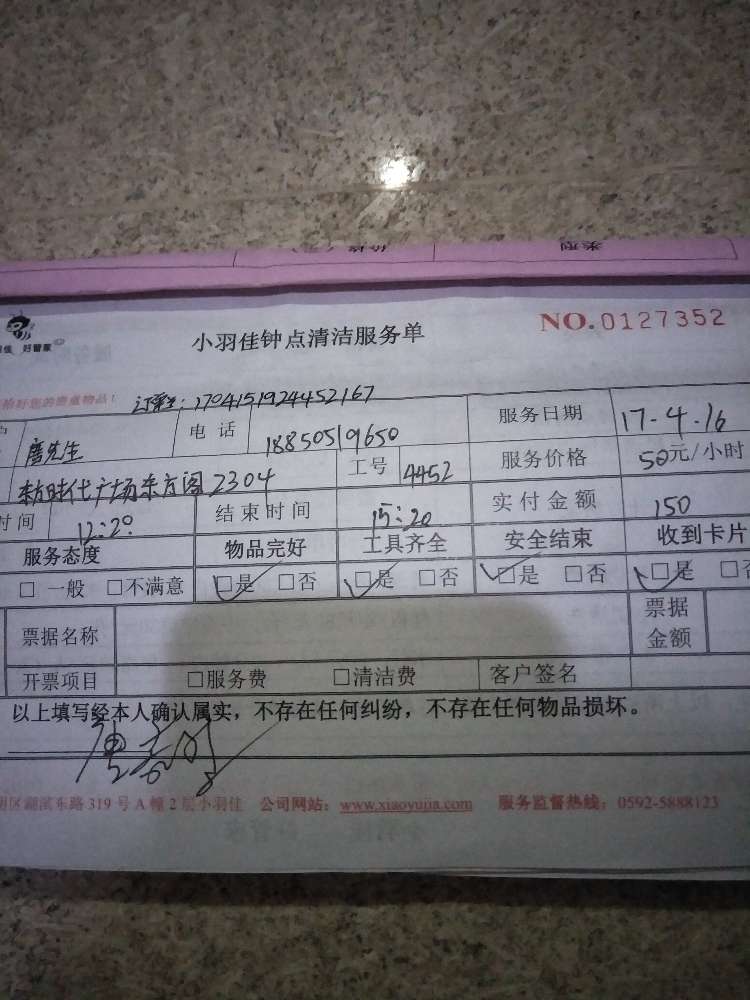 类型 价格
佳 好管家
小羽佳钟点清洁服务单
NO.0127352
拾好您的贵重物品!
订单号:1704151924452167
唐先生 电话 18850519650 服务日期 17-4-16
东方时代广场东方阁2304 工号 4452 服务价格 50元/小时
时间 12:20 结束时间 15:20 实付金额 150
服务态度 物品完好 工具齐全 安全结束 收到卡片
□ 一般 □不满意 □是 □否 □是 □否 □是 □否 □是 □否
票据名称 票据金额
开票项目 □服务费 □清洁费 客户签名
以上填写经本人确认属实,不存在任何纠纷,不存在任何物品损坏。
明区湖滨东路319号A幢2层小羽佳 公司网站:www.xiaoyujia.com 服务监督热线:0592-5888123